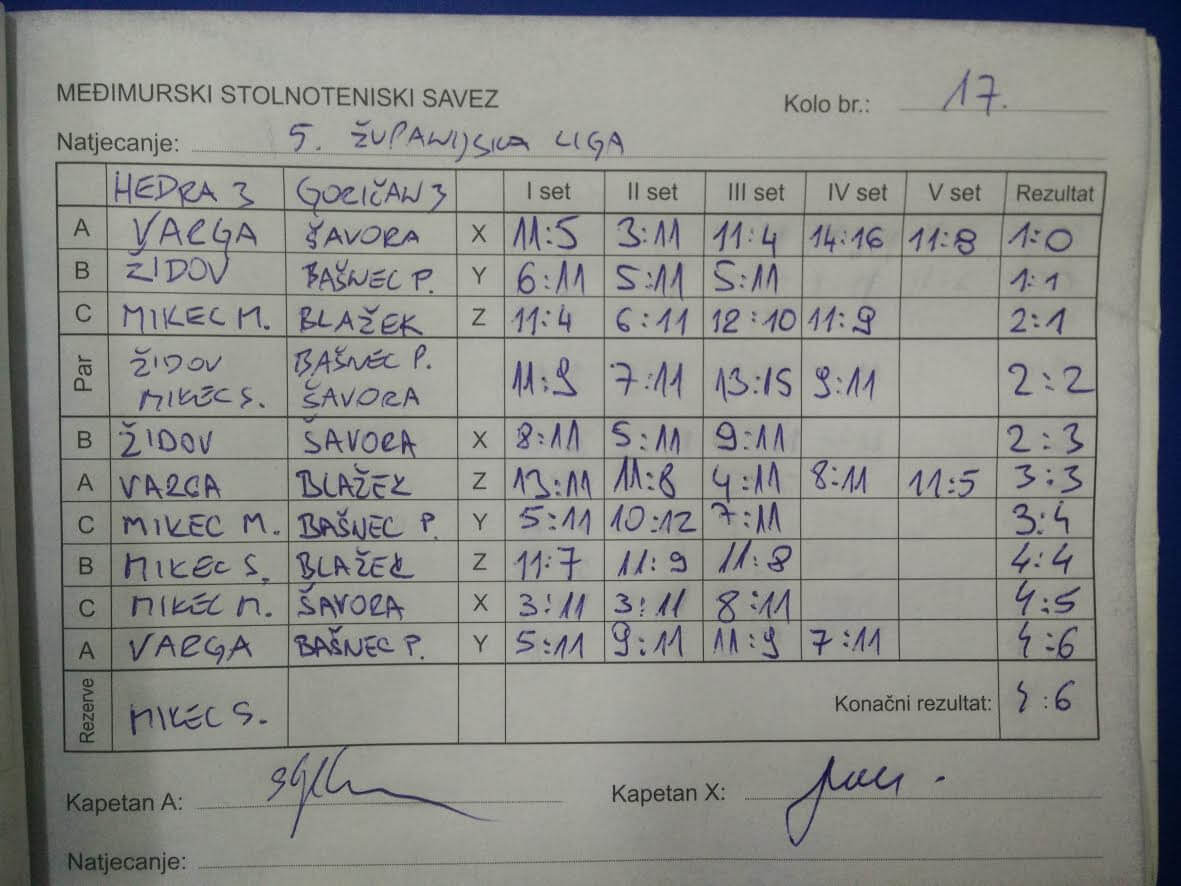 MEĐIMURSKI STOLNOTENISKI SAVEZ Kolo br.: 17.
Natjecanje: 5. ŽUPANIJSKA LIGA
HEDRA 3 GORIČAN 3 I set II set III set IV set V set Rezultat
A VARGA ŠAVORA X 11:5 3:11 11:4 14:16 11:8 1:0
B ŽIDOV BAŠNEC P. Y 6:11 5:11 5:11 1:1
C MIKEC M. BLAŽEK Z 11:4 6:11 12:10 11:9 2:1
Par ŽIDOV BAŠNEC P.
MIKEC S. ŠAVORA 11:9 7:11 13:15 9:11 2:2
B ŽIDOV ŠAVORA X 8:11 5:11 9:11 2:3
A VARGA BLAŽEK Z 13:11 11:8 4:11 8:11 11:5 3:3
C MIKEC M. BAŠNEC P. Y 5:11 10:12 7:11 3:4
B MIKEC S. BLAŽEK Z 11:7 11:9 11:8 4:4
C MIKEC M. ŠAVORA X 3:11 3:11 8:11 4:5
A VARGA BAŠNEC P. Y 5:11 9:11 11:9 7:11 4:6
Rezerve MIKEC S. Konačni rezultat: 4:6
Kapetan A: Kapetan X:
Natjecanje: